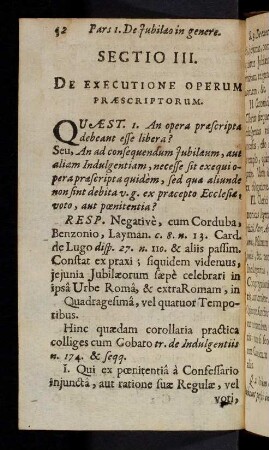 52 Pars I. De Jubilæo in genere.
SECTIO III.
DE EXECUTIONE OPERUM
PRÆSCRIPTORUM.
QUÆST. 1. An opera præscripta
debeant esse libera?
Seu, An ad consequendum Jubilæum, aut
aliam Indulgentiam, necesse sit exequi o-
pera præscripta quidem, sed quæ aliunde
non sint debita v. g. ex præcepto Ecclesiæ,
voto, aut pœnitentia?
RESP. Negativè, cum Corduba,
Benzonio, Layman. c. 8. n. 13. Card.
de Lugo disp. 27. n. 110. & aliis passim.
Constat ex praxi; siquidem videmus,
jejunia Jubilæorum sæpè celebrari in
ipsâ Urbe Româ, & extra Romam, in
Quadragesimâ, vel quatuor Tempo-
ribus.
Hinc quædam corollaria practica
colliges cum Gobato tr. de Indulgentiis
n. 174. & seqq.
I. Qui ex pœnitentiâ à Confessario
injunctâ, aut ratione suæ Regulæ, vel
voti,